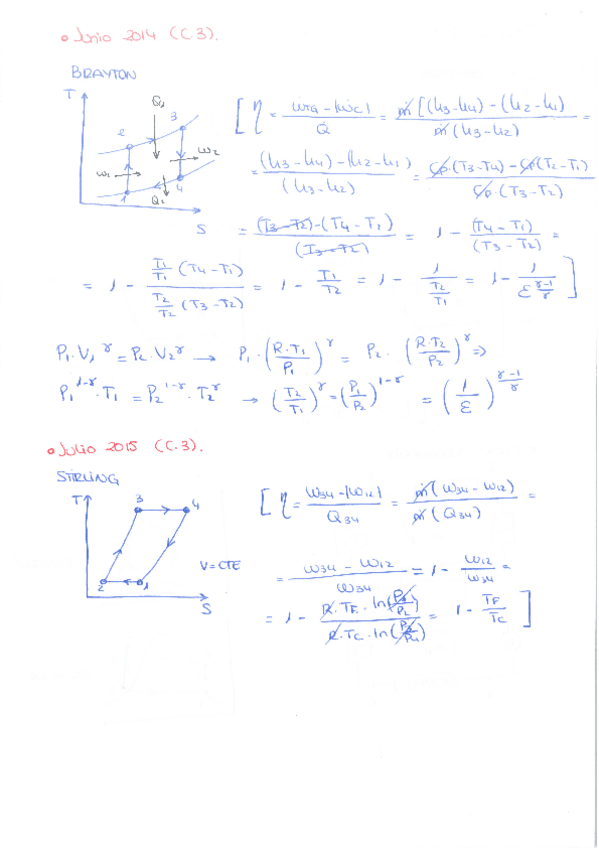 • Junio 2014 (C.3).
BRAYTON
T
Q1
2
3
W1
W2
1
Q2
4
S
[η = (WTG - |WC|) / Q = ṁ[(h3-h4) - (h2-h1)] / ṁ(h3-h2) =
= ((h3-h4) - (h2-h1)) / (h3-h2) = (Cp·(T3-T4) - Cp(T2-T1)) / (Cp·(T3-T2))
= ((T3-T2) - (T4-T1)) / (T3-T2) = 1 - (T4-T1) / (T3-T2) =
= 1 - (T1/T1 (T4-T1)) / (T2/T2 (T3-T2)) = 1 - T1/T2 = 1 - 1/(T2/T1) = 1 - 1/ε^((γ-1)/γ) ]
P1·V1^γ = P2·V2^γ → P1·(R·T1/P1)^γ = P2·(R·T2/P2)^γ =>
P1^(1-γ)·T1 = P2^(1-γ)·T2^γ → (T2/T1)^γ = (P1/P2)^(1-γ) = (1/ε)^((γ-1)/γ)
• Julio 2015 (C.3).
STIRLING
T
3
4
2
1
V=CTE
S
[η = (W34 - |W12|) / Q34 = ṁ(W34 - W12) / ṁ(Q34) =
= (W34 - W12) / W34 = 1 - W12/W34 =
= 1 - (R·TF·ln(P1/P2)) / (R·TC·ln(P3/P4)) = 1 - TF/TC ]